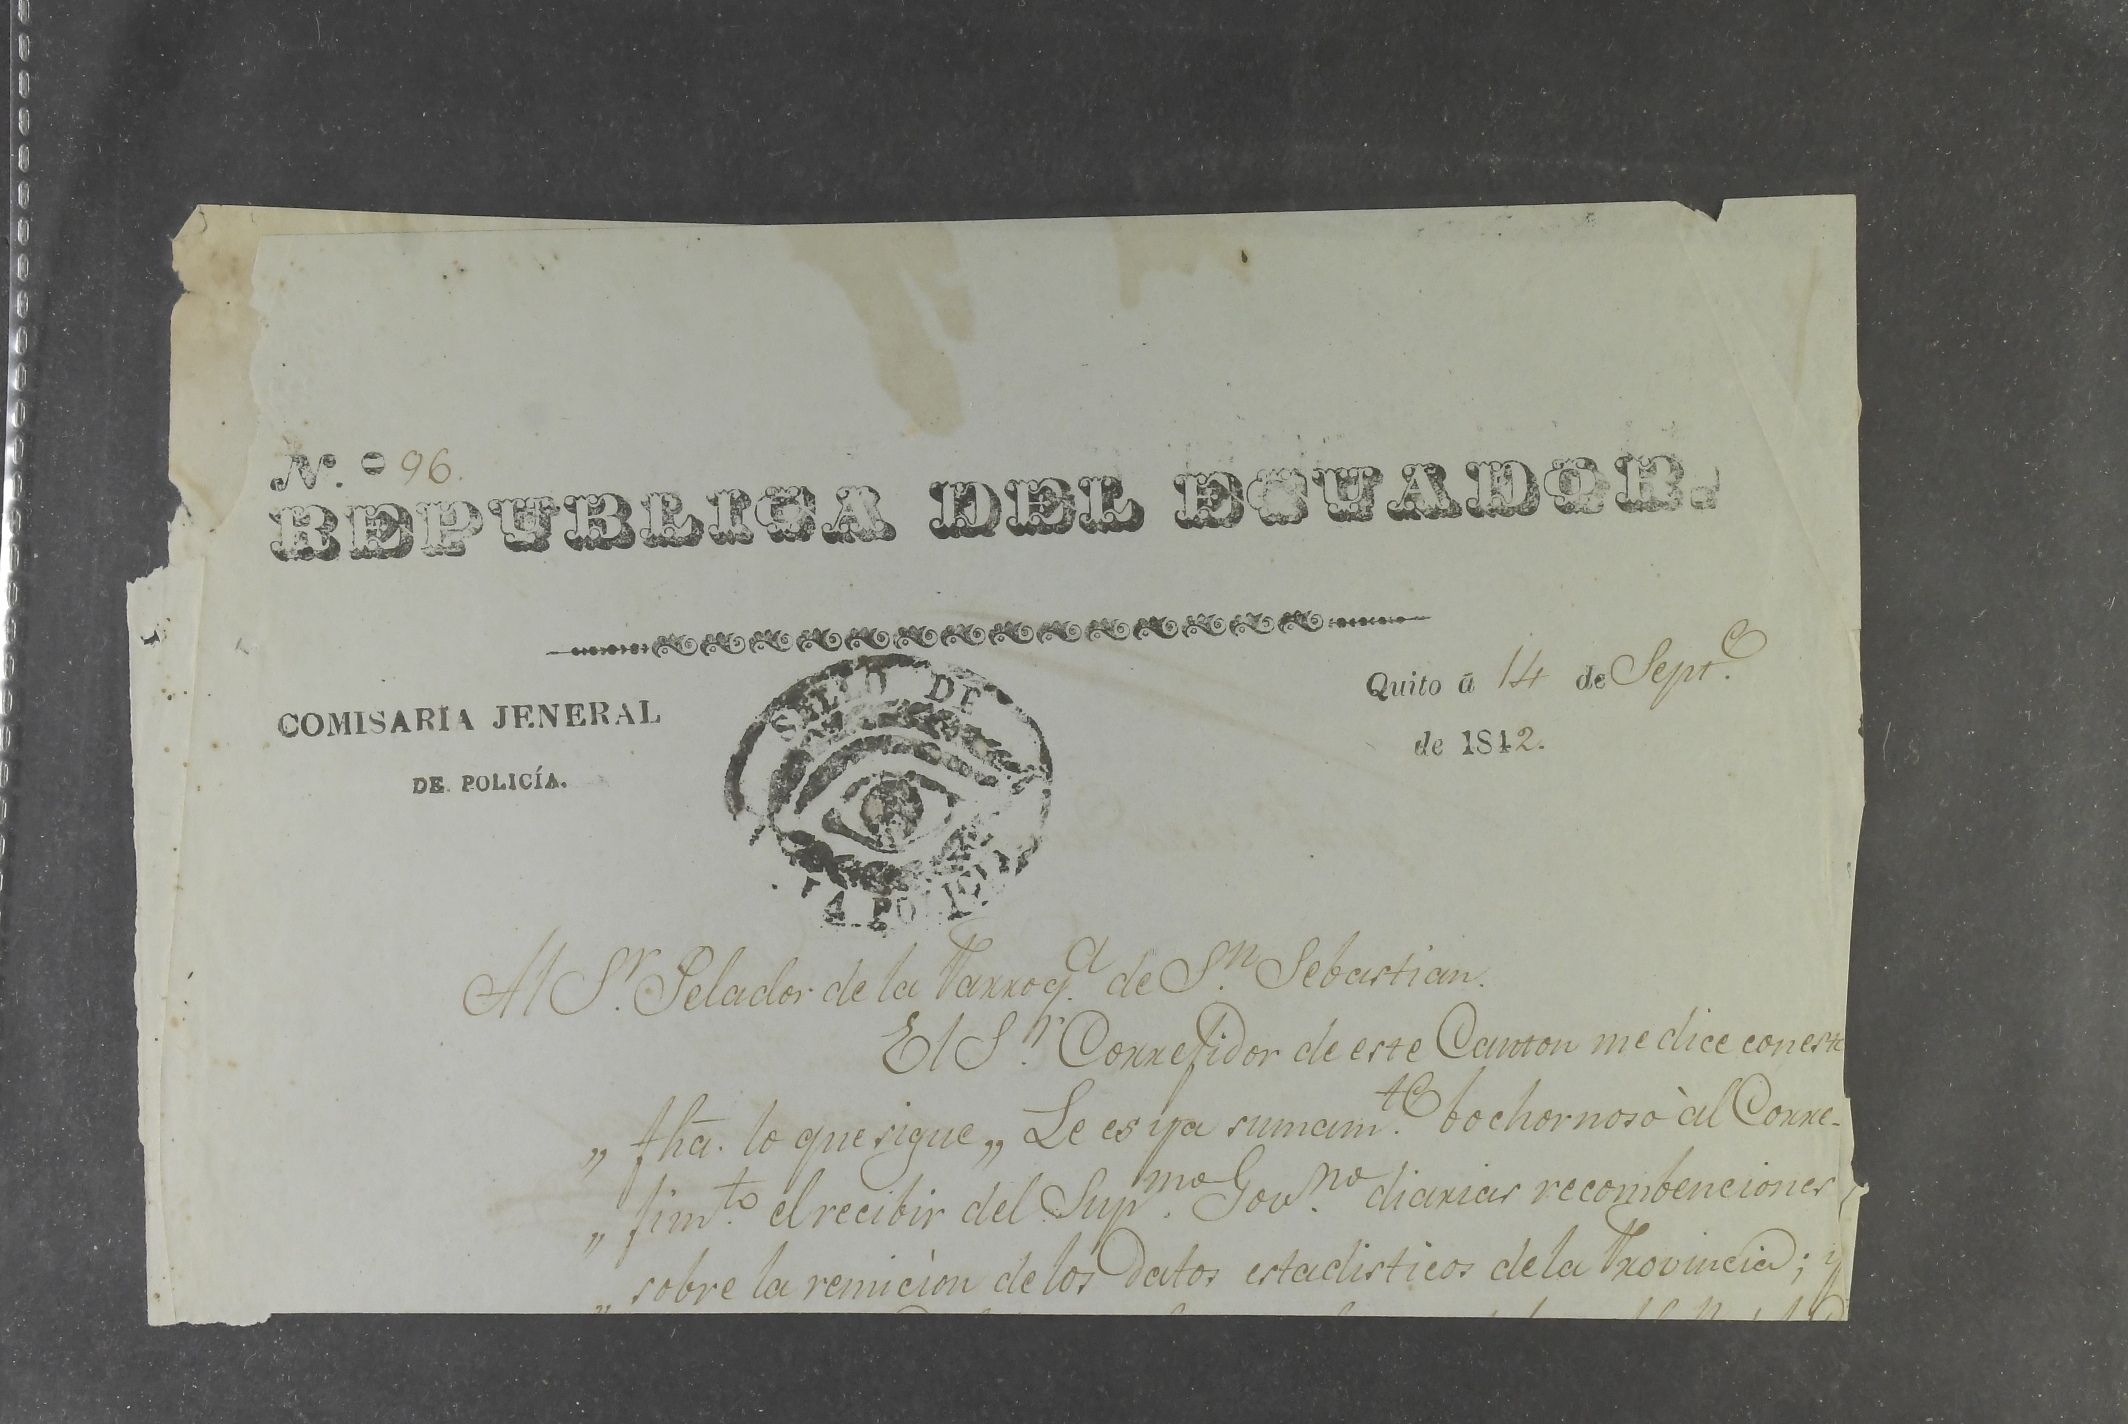 N.º 96.
REPUBLICA DEL ECUADOR.
COMISARÍA JENERAL
DE POLICÍA.
SELLO DE
LA POLICIA
Quito á 14 de Sept.e
de 1842.
Al S.r Zelador de la Parroq.a de S.n Sebastian.
El S.r Corregidor de este Canton me dice con esta
„ fha. lo que sigue „ Le es ya sumam.te bochornoso àl Corre-
„ gim.to el recibir del Sup.mo Gov.no diarias recombenciones
„ sobre la remicion de los Datos estadisticos de la Provincia; y